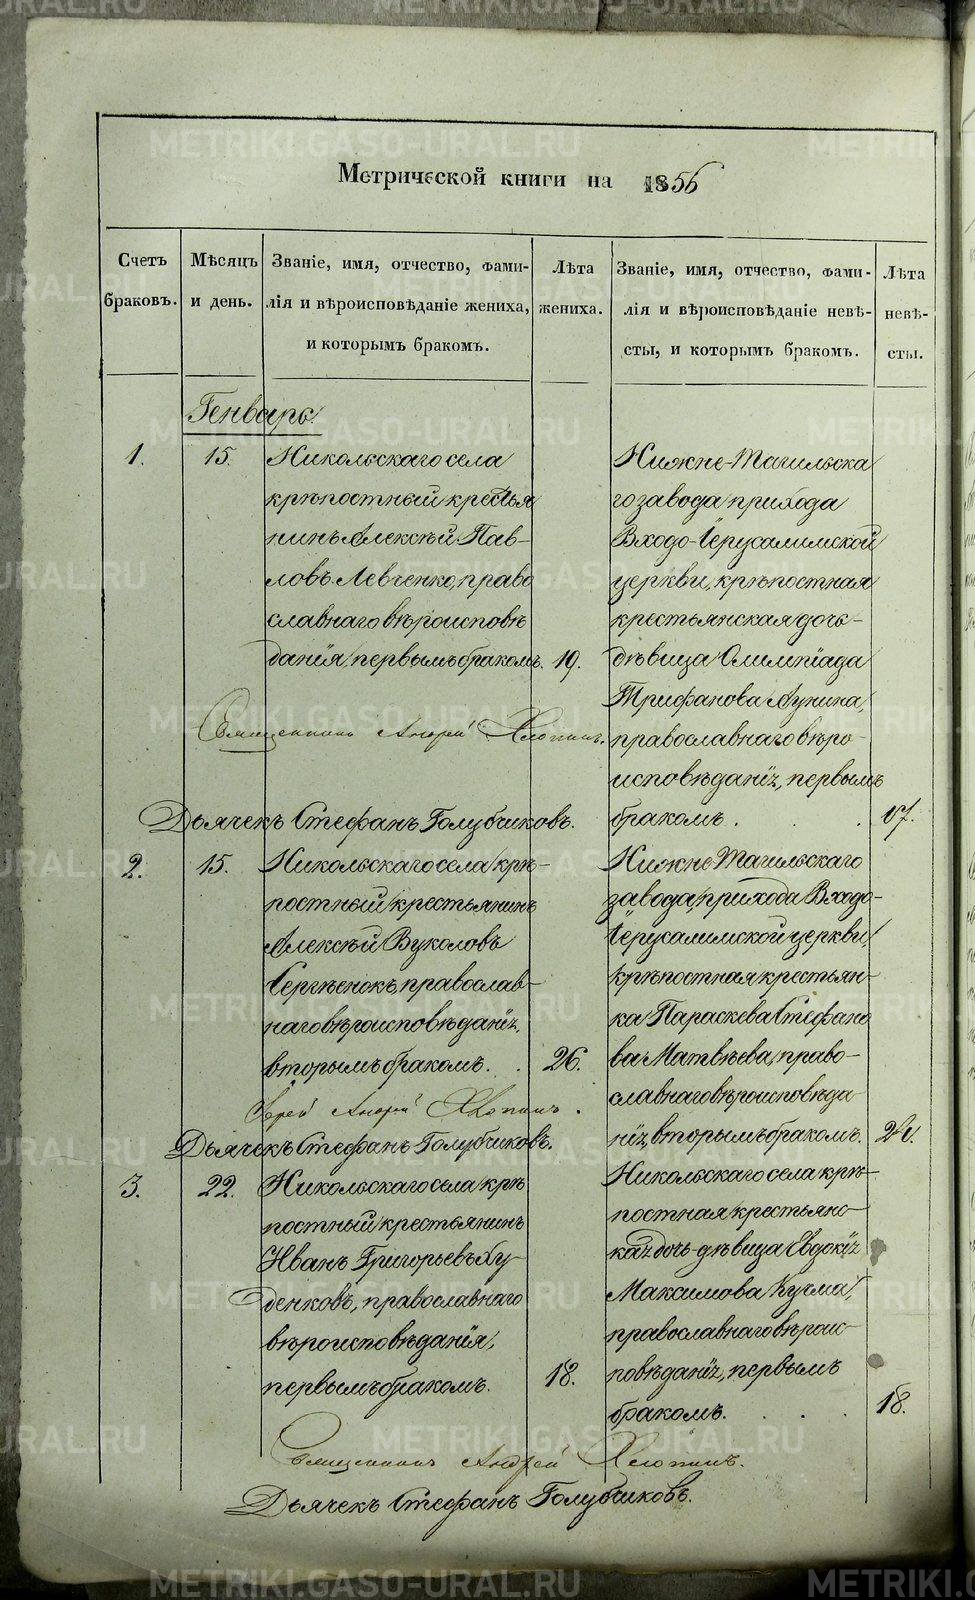 Метрической книги на 1856
Счетъ браковъ.
Мѣсяцъ и день.
Званіе, имя, отчество, фами-
лія и вѣроисповѣданіе жениха,
и которымъ бракомъ.
Лѣта жениха.
Званіе, имя, отчество, фами-
лія и вѣроисповѣданіе невѣ-
сты, и которымъ бракомъ.
Лѣта невѣ-
сты.
Генварь.
1. 15.
Никольскаго села
крѣпостный крестья
нинъ Алексѣй Пав-
ловъ Левченко, право
славнаго вѣроисповѣ
данія, первымъ бракомъ. 19.
Священникъ Андрей Хлопинъ.
Дьячекъ Стефанъ Голубчиковъ.
Нижне-Тагильска
го завода прихода
Входо-Іерусалимской
церкви, крѣпостная
крестьянская дочь-
дѣвица Олимпіада
Трифанова Лунина,
православнаго вѣро-
исповѣданія, первымъ
бракомъ. 17.
2. 15.
Никольскаго села крѣ-
постный крестьянинъ
Алексѣй Вуколовъ
Сергѣенокъ, православ-
наго вѣроисповѣданія,
вторымъ бракомъ. 26.
Іерей Андрей Хлопинъ.
Дьячекъ Стефанъ Голубчиковъ.
Нижне Тагильскаго
завода, прихода Входо-
Іерусалимской церкви,
крѣпостная крестьян-
ка Параскева Стефано
ва Матвѣева, право-
славнаго вѣроисповѣда
нія, вторымъ бракомъ. 24.
3. 22.
Никольскаго села крѣ
постный крестьянинъ
Иванъ Григорьевъ Ху-
денковъ, православнаго
вѣроисповѣданія,
первымъ бракомъ. 18.
Никольскаго села крѣ-
постная крестьянс-
кая дочь-дѣвица Евдокія
Максимова Кузма,
православнаго вѣроис-
повѣданія, первымъ
бракомъ. 18.
Священникъ Андрей Хлопинъ.
Дьячекъ Стефанъ Голубчиковъ.
METRIKI.GASO-URAL.RU